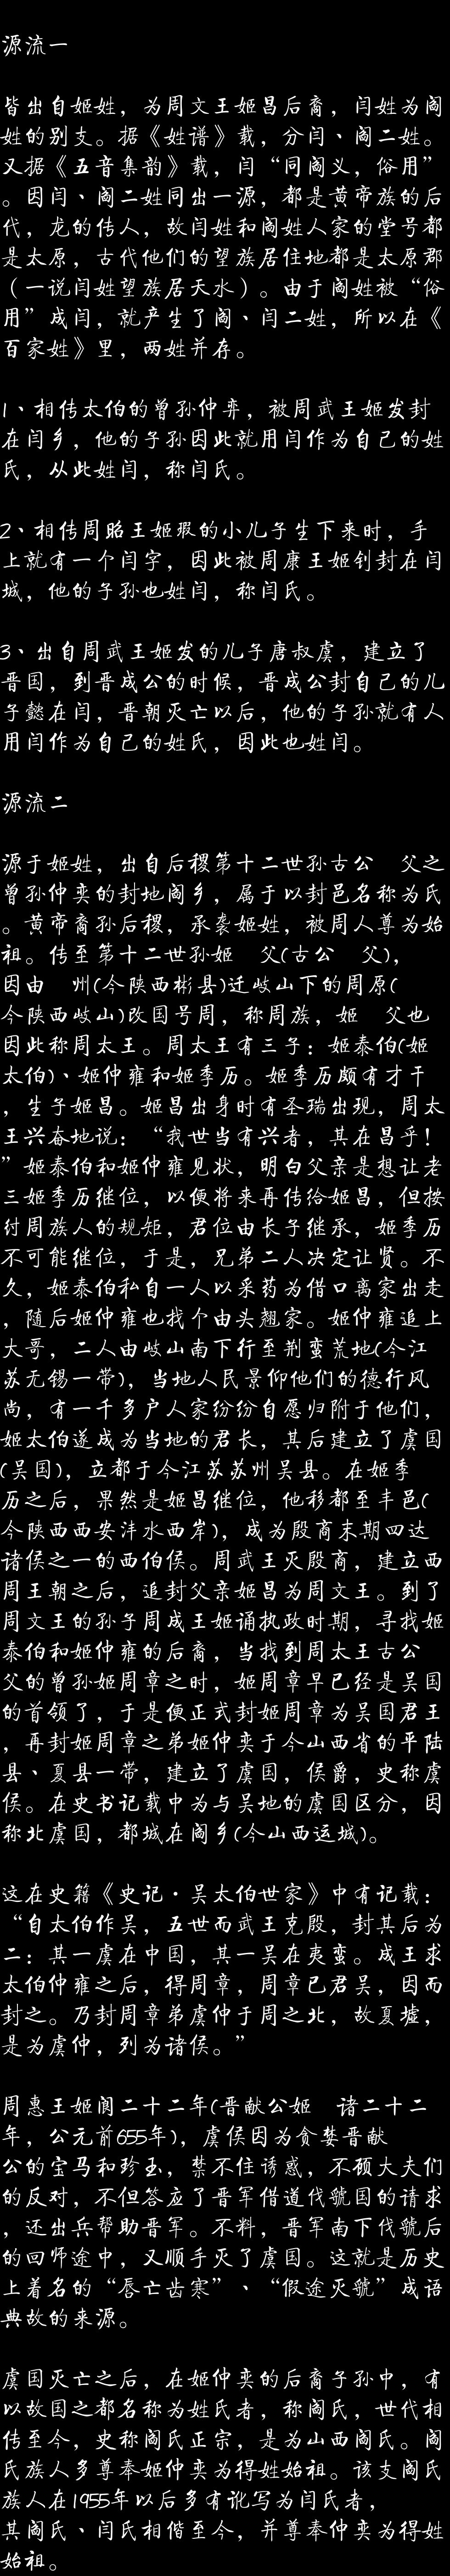 源流一
皆出自姬姓，为周文王姬昌后裔，闫姓为阎
姓的别支。据《姓谱》载，分闫、阎二姓。
又据《五音集韵》载，闫“同阎义，俗用”
。因闫、阎二姓同出一源，都是黄帝族的后
代，龙的传人，故闫姓和阎姓人家的堂号都
是太原，古代他们的望族居住地都是太原郡
（一说闫姓望族居天水）。由于阎姓被“俗
用”成闫，就产生了阎、闫二姓，所以在《
百家姓》里，两姓并存。
1、相传太伯的曾孙仲弈，被周武王姬发封
在闫乡，他的子孙因此就用闫作为自己的姓
氏，从此姓闫，称闫氏。
2、相传周昭王姬瑕的小儿子生下来时，手
上就有一个闫字，因此被周康王姬钊封在闫
城，他的子孙也姓闫，称闫氏。
3、出自周武王姬发的儿子唐叔虞，建立了
晋国，到晋成公的时候，晋成公封自己的儿
子懿在闫，晋朝灭亡以后，他的子孙就有人
用闫作为自己的姓氏，因此也姓闫。
源流二
源于姬姓，出自后稷第十二世孙古公　父之
曾孙仲奕的封地阎乡，属于以封邑名称为氏
。黄帝裔孙后稷，承袭姬姓，被周人尊为始
祖。传至第十二世孙姬　父(古公　父)，
因由　州(今陕西彬县)迁岐山下的周原(
今陕西岐山)改国号周，称周族，姬　父也
因此称周太王。周太王有三子：姬泰伯(姬
太伯)、姬仲雍和姬季历。姬季历颇有才干
，生子姬昌。姬昌出身时有圣瑞出现，周太
王兴奋地说：“我世当有兴者，其在昌乎！
”姬泰伯和姬仲雍见状，明白父亲是想让老
三姬季历继位，以便将来再传给姬昌，但按
纣周族人的规矩，君位由长子继承，姬季历
不可能继位，于是，兄弟二人决定让贤。不
久，姬泰伯私自一人以采药为借口离家出走
，随后姬仲雍也找个由头翘家。姬仲雍追上
大哥，二人由岐山南下行至荆蛮荒地(今江
苏无锡一带)，当地人民景仰他们的德行风
尚，有一千多户人家纷纷自愿归附于他们，
姬太伯遂成为当地的君长，其后建立了虞国
(吴国)，立都于今江苏苏州吴县。在姬季
历之后，果然是姬昌继位，他移都至丰邑(
今陕西西安沣水西岸)，成为殷商末期四达
诸侯之一的西伯侯。周武王灭殷商，建立西
周王朝之后，追封父亲姬昌为周文王。到了
周文王的孙子周成王姬诵执政时期，寻找姬
泰伯和姬仲雍的后裔，当找到周太王古公
父的曾孙姬周章之时，姬周章早已经是吴国
的首领了，于是便正式封姬周章为吴国君王
，再封姬周章之弟姬仲奕于今山西省的平陆
县、夏县一带，建立了虞国，侯爵，史称虞
侯。在史书记载中为与吴地的虞国区分，因
称北虞国，都城在阎乡(今山西运城)。
这在史籍《史记·吴太伯世家》中有记载：
“自太伯作吴，五世而武王克殷，封其后为
二：其一虞在中国，其一吴在夷蛮。成王求
太伯仲雍之后，得周章，周章已君吴，因而
封之。乃封周章弟虞仲于周之北，故夏墟，
是为虞仲，列为诸侯。”
周惠王姬阆二十二年(晋献公姬　诸二十二
年，公元前655年)，虞侯因为贪婪晋献
公的宝马和珍玉，禁不住诱惑，不顾大夫们
的反对，不但答应了晋军借道伐虢国的请求
，还出兵帮助晋军。不料，晋军南下伐虢后
的回师途中，又顺手灭了虞国。这就是历史
上着名的“唇亡齿寒”、“假途灭虢”成语
典故的来源。
虞国灭亡之后，在姬仲奕的后裔子孙中，有
以故国之都名称为姓氏者，称阎氏，世代相
传至今，史称阎氏正宗，是为山西阎氏。阎
氏族人多尊奉姬仲奕为得姓始祖。该支阎氏
族人在1955年以后多有讹写为闫氏者，
其阎氏、闫氏相偕至今，并尊奉仲奕为得姓
始祖。